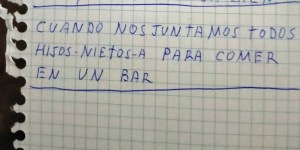 CUANDO NOS JUNTAMOS TODOS
HIJOS-NIETOS-A PARA COMER
EN UN BAR